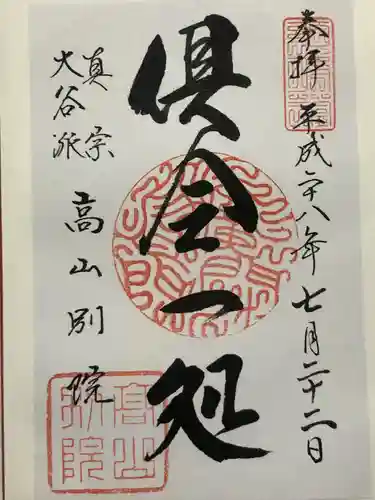 奉拝 平成二十八年七月二十二日
倶会一処
真宗
大谷派
高山別院
高山
別院